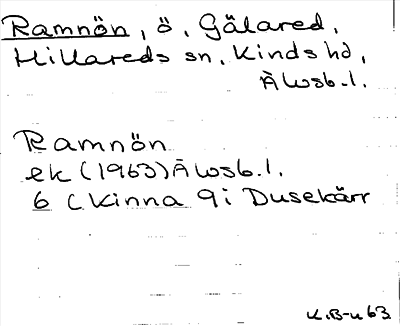 Ramnön, ö, Gälared,
Hillareds sn, Kinds hd,
Älvsb.l.
Ramnön
ek (1963) Älvsb.l.
6 (Kinna 9i Dusekärr
K.B-n 63